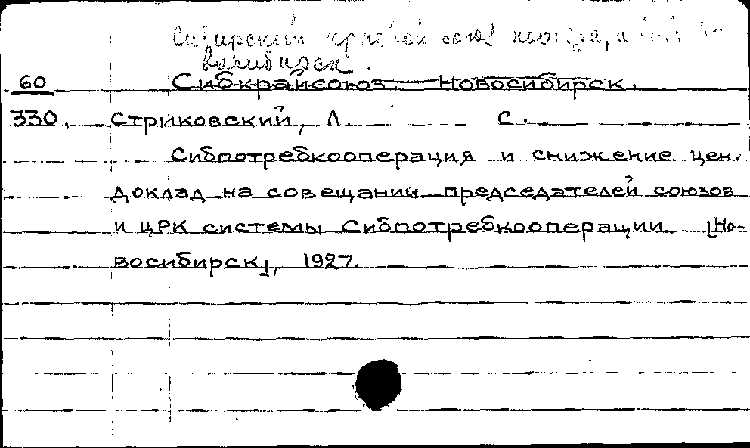 Сибирский краевой союз
60 Сибкрайсоюз. Новосибирск.
330. Стриковский, Л. С.
Сибпотребкооперация и снижение цен.
Доклад на совещании председателей союзов
и ЦРК системы Сибпотребкооперации. [Но-
восибирск], 1927.